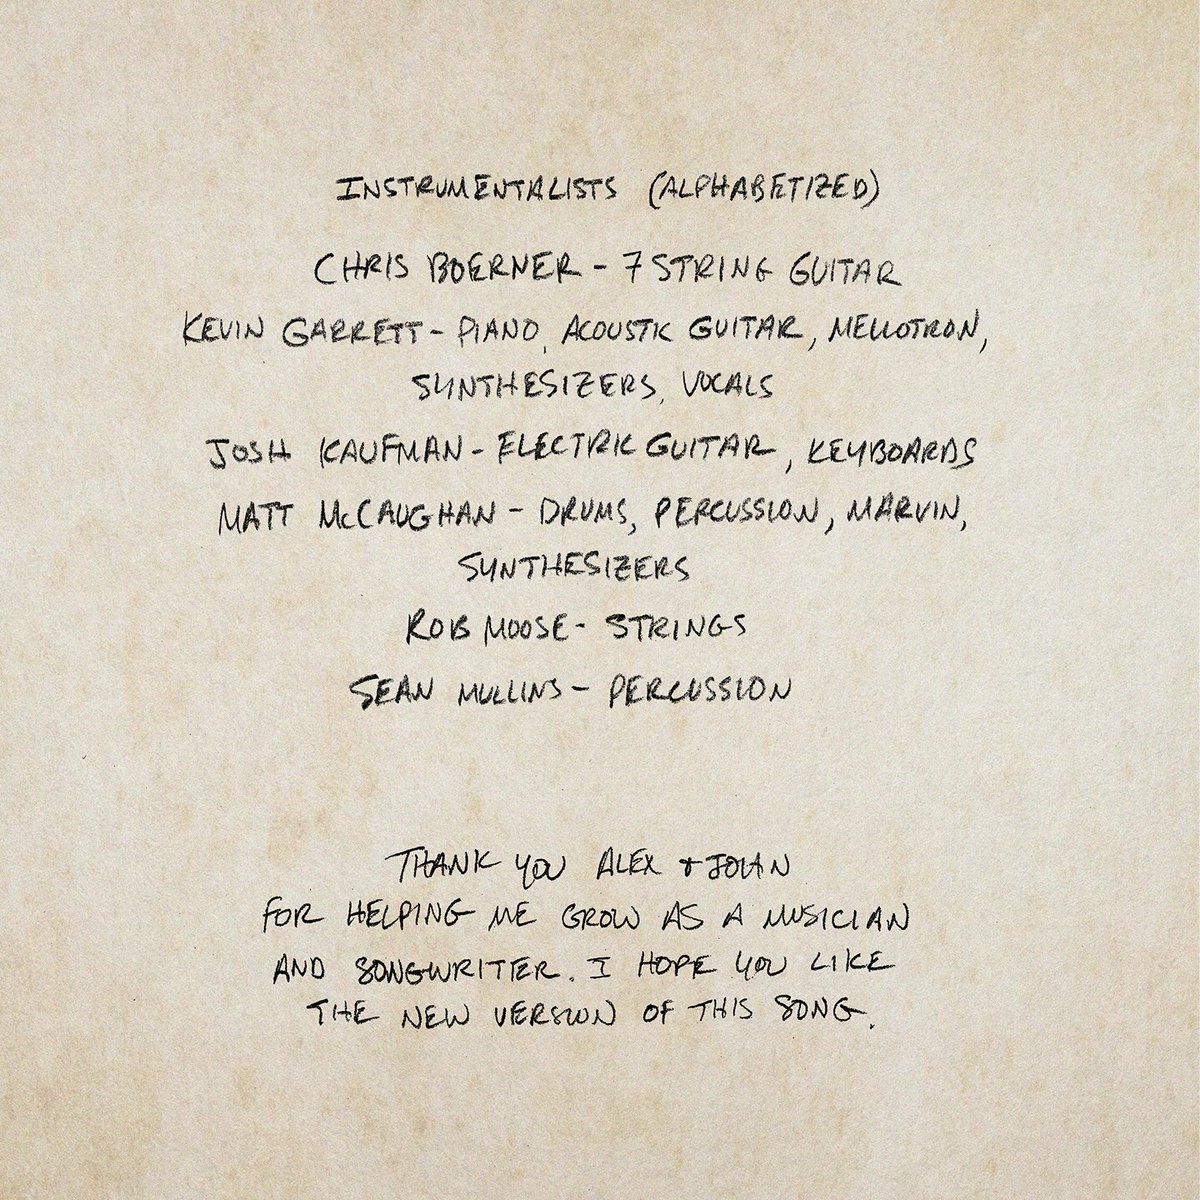 INSTRUMENTALISTS (ALPHABETIZED)
CHRIS BOERNER - 7 STRING GUITAR
KEVIN GARRETT - PIANO, ACOUSTIC GUITAR, MELLOTRON,
SYNTHESIZERS, VOCALS
JOSH KAUFMAN - ELECTRIC GUITAR, KEYBOARDS
MATT McCAUGHAN - DRUMS, PERCUSSION, MARVIN,
SYNTHESIZERS
ROB MOOSE - STRINGS
SEAN MULLINS - PERCUSSION
THANK YOU ALEX + JOHN
FOR HELPING ME GROW AS A MUSICIAN
AND SONGWRITER. I HOPE YOU LIKE
THE NEW VERSION OF THIS SONG.